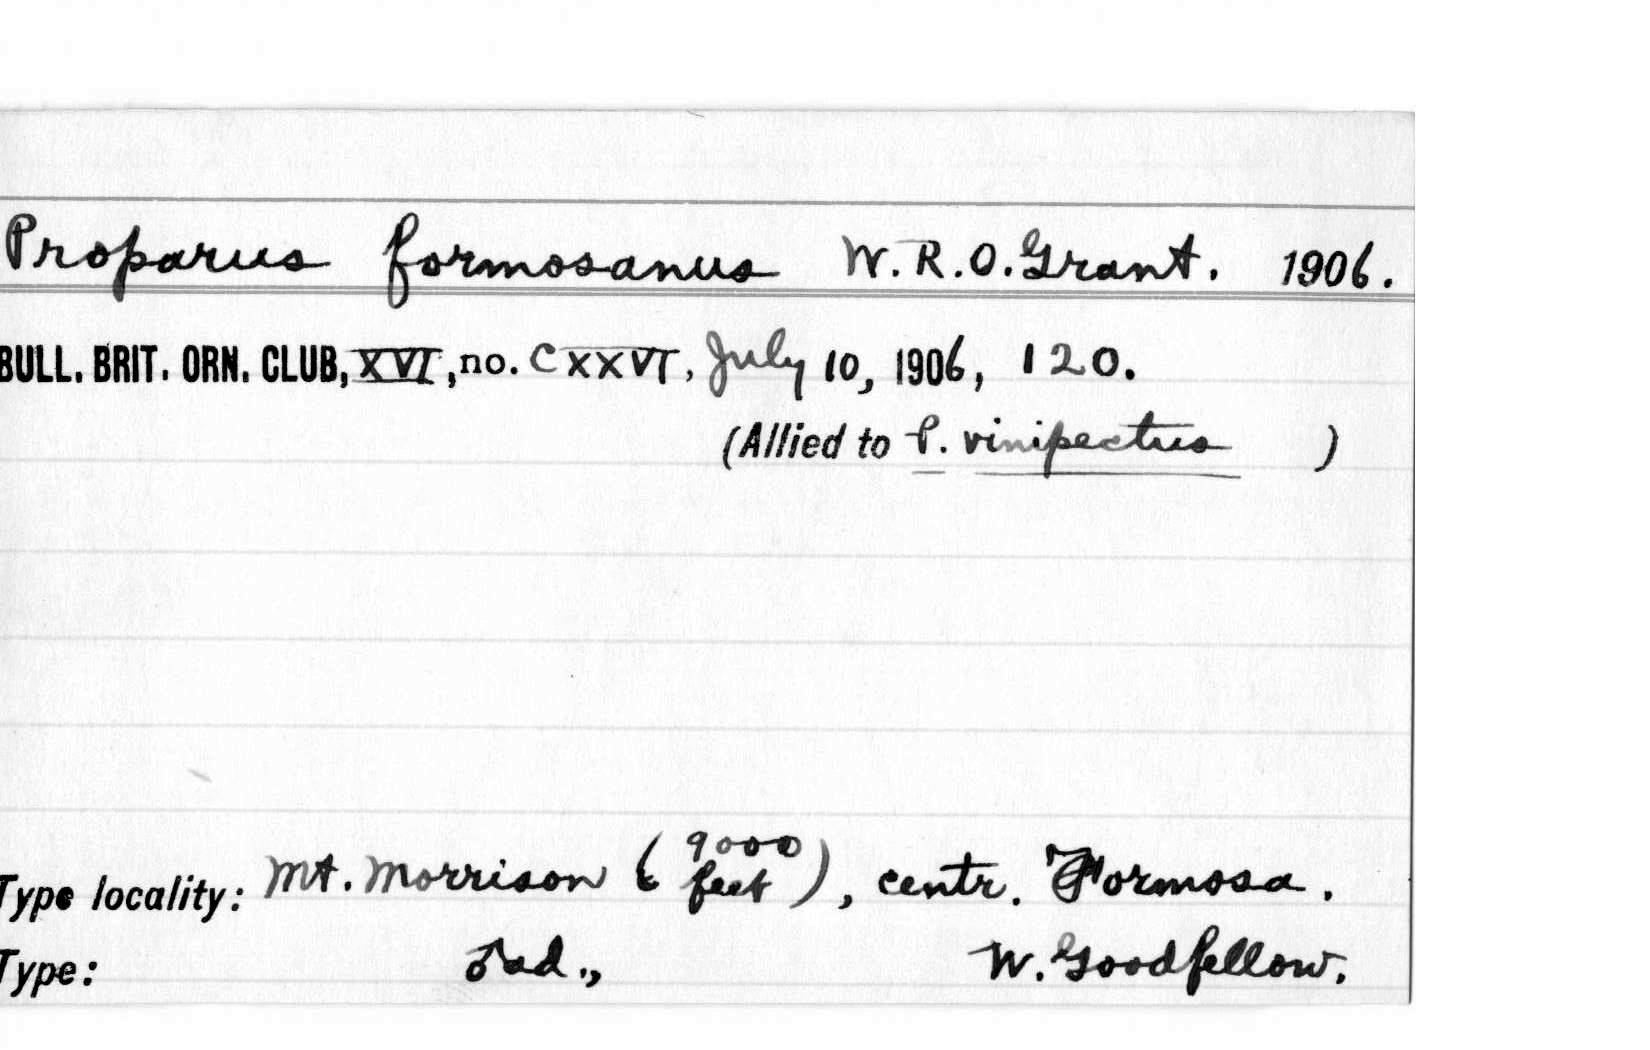 Proparus formosanus W. R. O. Grant. 1906.
BULL. BRIT. ORN. CLUB, XVI, no. CXXVI, July 10, 1906, 120.
(Allied to P. vinipectus )
Type locality: Mt. Morrison (9000 feet), centr. Formosa.
Type: ♂ ad., W. Goodfellow.